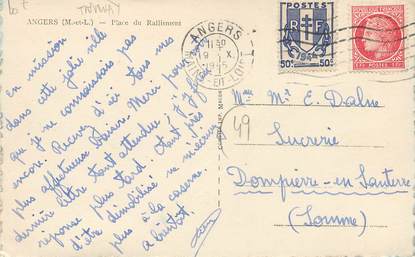 TRMWAY
ANGERS (M.-et-L.) — Place du Ralliement
En mission
dans cette jolie ville
que je ne connaissais pas
encore. Recevez d'ici tous mes
plus affectueux baisers. Merci pour
dernière lettre tant attendue j'y ferai
réponse plus tard. Etant près
d'être démobilisé ne m'écrivez
plus à la caserne.
à bientôt.
ANGERS
MAINE-ET-LOIRE
POSTES
RF
50c 50c
Mr E. Dalne
Sucrerie
Dompierre-en-Santerre
(Somme)
49